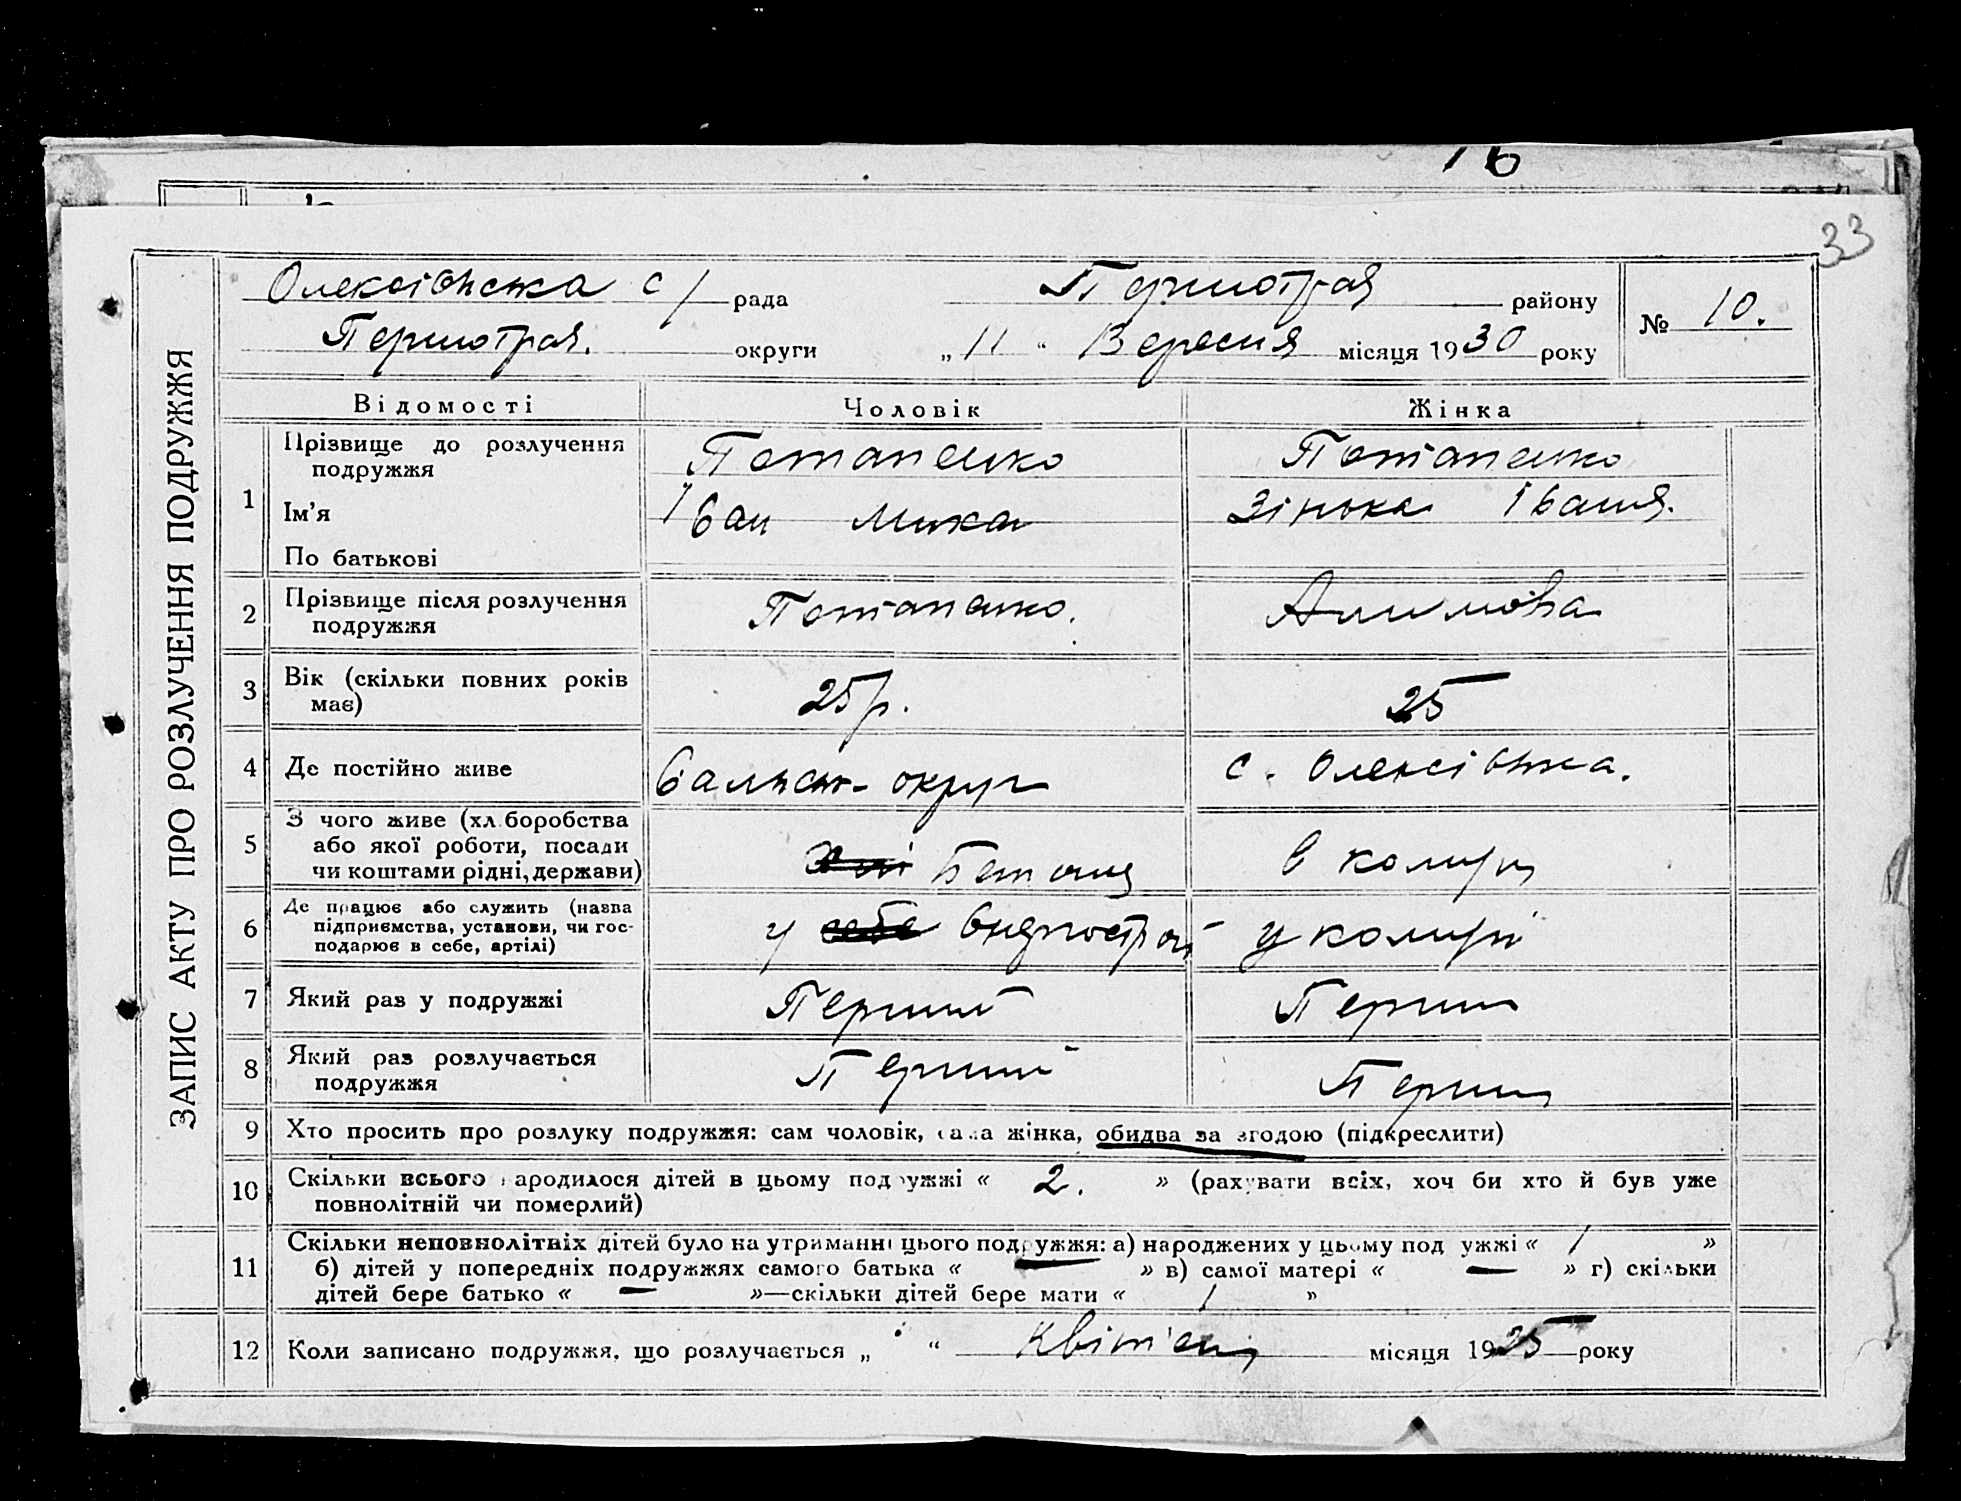 16
33
ЗАПИС АКТУ ПРО РОЗЛУЧЕННЯ ПОДРУЖЖЯ
Олексівська с/ рада Першотрав району № 10.
Першотрав. округи „ 11 “ Вересня місяця 1930 року
Відомості Чоловік Жінка
1 Прізвище до розлучення подружжя Потапенко Потапенко
Ім'я Іван Мика Зінька Іваня.
По батькові
2 Прізвище після розлучення
подружжя Потапенко. Алимова
3 Вік (скільки повних років
має) 25 р. 25
4 Де постійно живе округ с. Олексівка.
5 З чого живе (хл.боробства
або якої роботи, посади
чи коштами рідні, держави) в комуні
6 Де працює або служить (назва
підприємства, установи, чи гос-
подарює в себе, артілі) у у комуні
7 Який раз у подружжі Перший Перши
8 Який раз розлучається
подружжя Перший Перши
9 Хто просить про розлуку подружжя: сам чоловік, сама жінка, обидва за згодою (підкреслити)
10 Скільки всього народилося дітей в цьому подружжі « 2. » (рахувати всіх, хоч би хто й був уже
повнолітній чи померлий)
11 Скільки неповнолітніх дітей було на утриманні цього подружжя: а) народжених у цьому подружжі « 1 »
б) дітей у попередніх подружжях самого батька « — » в) самої матері « — » г) скільки
дітей бере батько « — »—скільки дітей бере мати « 1 »
12 Коли записано подружжя, що розлучається „ “ Квітень місяця 1925 року